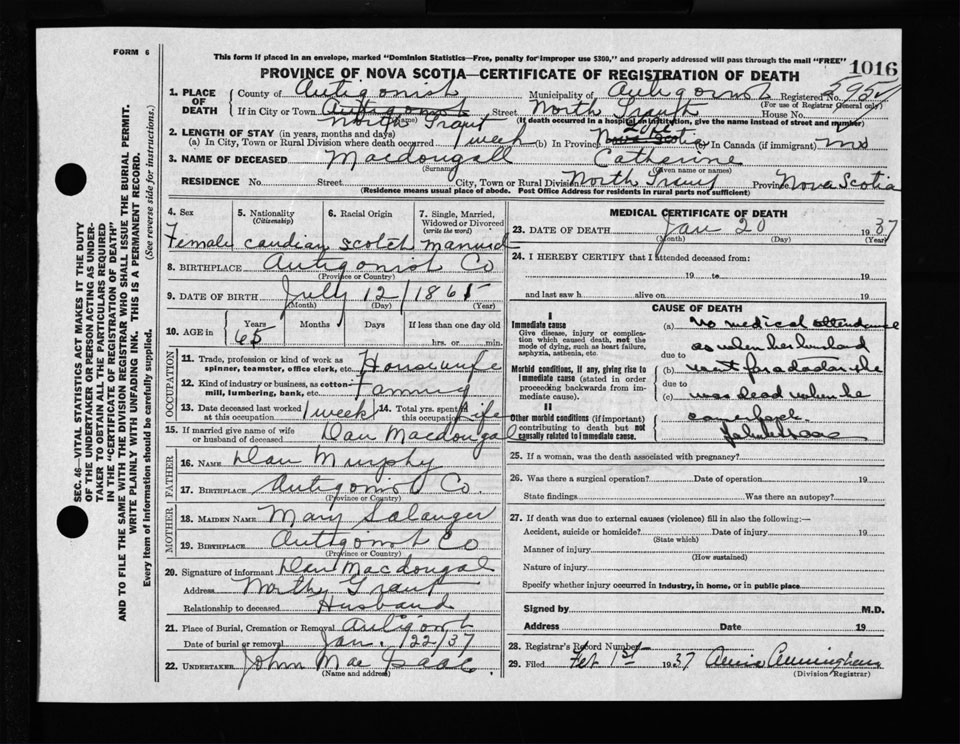 FORM 6
This form if placed in an envelope, marked "Dominion Statistics—Free, penalty for improper use $300," and properly addressed will pass through the mail "FREE"
PROVINCE OF NOVA SCOTIA—CERTIFICATE OF REGISTRATION OF DEATH
1016
1. PLACE OF DEATH
County of Antigonish Municipality of Antigonish Registered No.
(For use of Registrar General only)
If in City or Town Antigonish Street North Grant House No.
(Name) (If death occurred in a hospital or institution, give the name instead of street and number)
North Grant
2. LENGTH OF STAY (in years, months and days)
(a) In City, Town or Rural Division where death occurred 1 week (b) In Province Life Nova Scotia (c) In Canada (if immigrant)
3. NAME OF DECEASED Macdougall Catherine
(Surname) (Given name or names)
RESIDENCE No. Street City, Town or Rural Division North Grant Province Nova Scotia
(Residence means usual place of abode. Post Office Address for residents in rural parts not sufficient)
4. Sex 5. Nationality (Citizenship) 6. Racial Origin 7. Single, Married, Widowed or Divorced (write the word)
Female candian scotch married
8. BIRTHPLACE Antigonist Co
(Province or Country)
9. DATE OF BIRTH July 12/1865
(Month) (Day) (Year)
10. AGE in Years Months Days If less than one day old
65 hrs. or min.
OCCUPATION
11. Trade, profession or kind of work as spinner, teamster, office clerk, etc. Housewife
12. Kind of industry or business, as cotton-mill, lumbering, bank, etc. Farming
13. Date deceased last worked at this occupation 1 week 14. Total yrs. spent in this occupation Life
15. If married give name of wife or husband of deceased Dan Macdougal
FATHER
16. NAME Dan Murphy
17. BIRTHPLACE Antigonist Co.
(Province or Country)
MOTHER
18. MAIDEN NAME Mary Salanger
19. BIRTHPLACE Antigonist Co
(Province or Country)
20. Signature of informant Dan Macdougal
Address North Grant
Relationship to deceased Husband
21. Place of Burial, Cremation or Removal Antigonist
Date of burial or removal Jan. 22/37
22. UNDERTAKER John Mac Isaac
(Name and address)
MEDICAL CERTIFICATE OF DEATH
23. DATE OF DEATH Jan 20 1937
(Month) (Day) (Year)
24. I HEREBY CERTIFY that I attended deceased from:
19 to 19
and last saw h alive on 19
CAUSE OF DEATH
I
Immediate cause
Give disease, injury or complication which caused death, not the mode of dying, such as heart failure, asphyxia, asthenia, etc.
Morbid conditions, if any, giving rise to immediate cause (stated in order proceeding backwards from immediate cause).
II
Other morbid conditions (if important) contributing to death but not causally related to immediate cause.
(a) no medical attendance
as when her husband
due to
(b) went for a doctor she
due to
(c) was dead when he
came back
25. If a woman, was the death associated with pregnancy?
26. Was there a surgical operation? Date of operation 19
State findings Was there an autopsy?
27. If death was due to external causes (violence) fill in also the following:—
Accident, suicide or homicide? Date of injury 19
(State which)
Manner of injury
(How sustained)
Nature of injury
Specify whether injury occurred in industry, in home, or in public place
Signed by M.D.
Address Date 19
28. Registrar's Record Number
29. Filed Feb 1st 1937
(Division Registrar)
SEC. 46—VITAL STATISTICS ACT MAKES IT THE DUTY
OF THE UNDERTAKER OR PERSON ACTING AS UNDER-
TAKER TO OBTAIN ALL THE PARTICULARS REQUIRED
IN THE "CERTIFICATE OF REGISTRATION OF DEATH"
AND TO FILE THE SAME WITH THE DIVISION REGISTRAR WHO SHALL ISSUE THE BURIAL PERMIT.
WRITE PLAINLY WITH UNFADING INK. THIS IS A PERMANENT RECORD.
Every item of information should be carefully supplied. (See reverse side for instructions.)